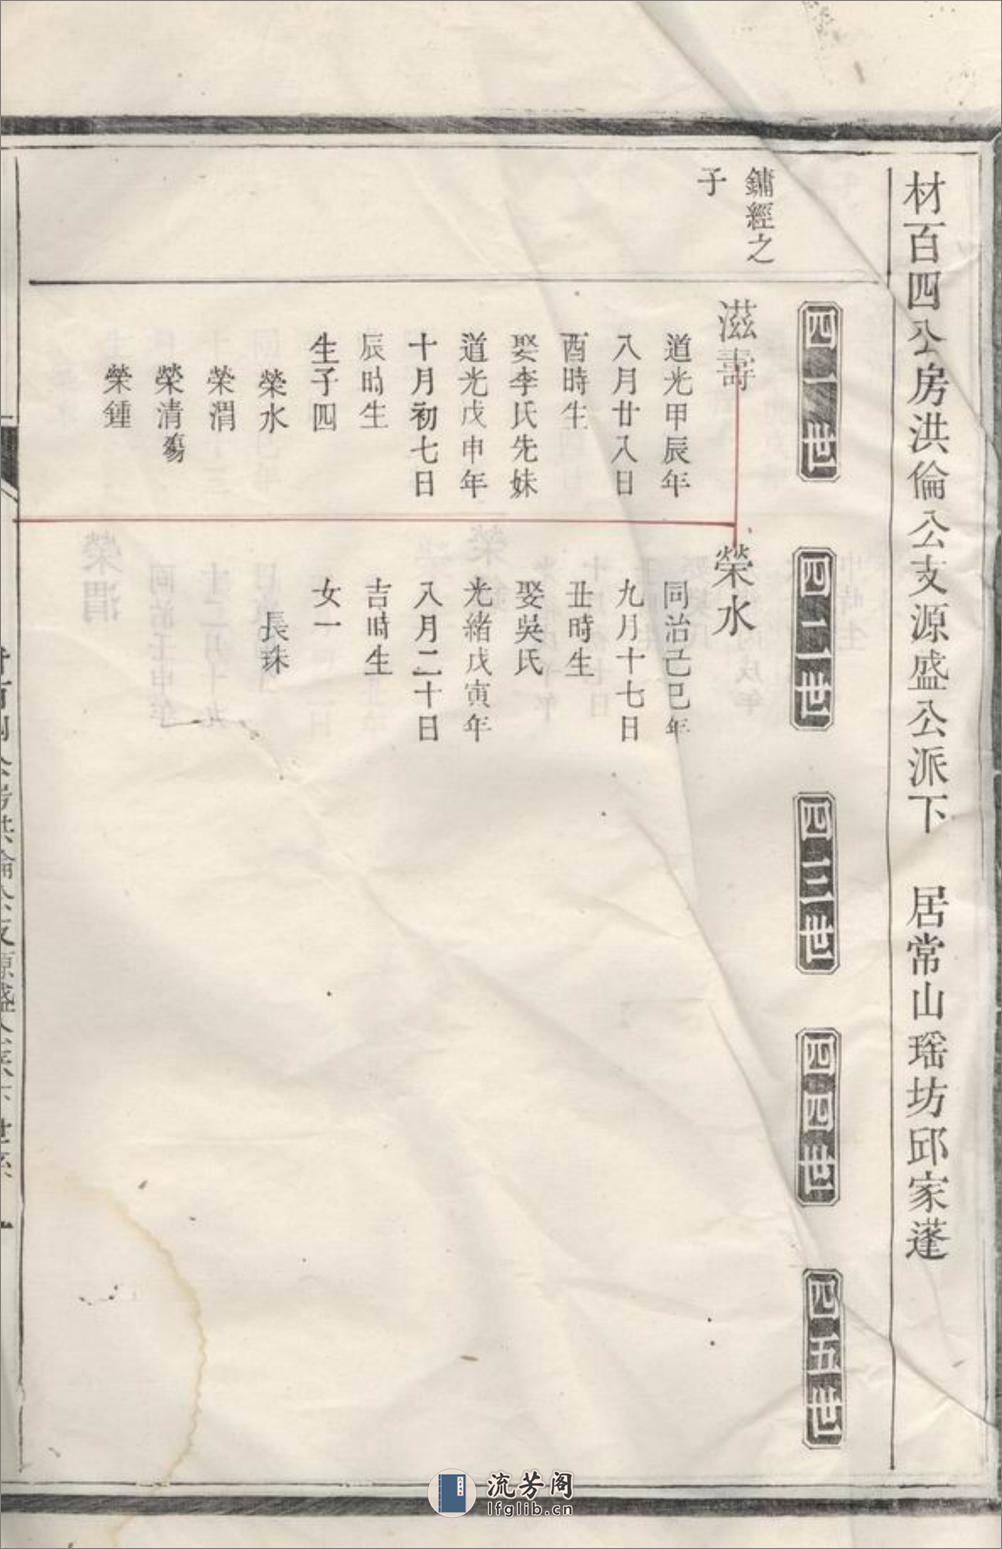 材百四公房洪倫公支源盛公派下　居常山瑶坊邱家蓬
四一世
四二世
四三世
四四世
四五世
鏞經之
子
滋壽
道光甲辰年
八月廿八日
酉時生
娶李氏先妹
道光戊申年
十月初七日
辰時生
生子四
榮水
榮渭
榮清殤
榮鍾
榮水
同治己巳年
九月十七日
丑時生
娶吳氏
光緒戊寅年
八月二十日
吉時生
女一
長珠
流芳阁
lfglib.cn